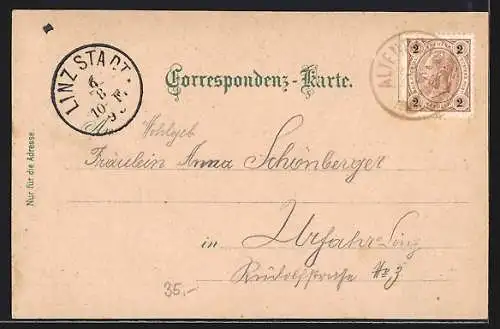 LINZ STADT
6
8
Correspondenz-Karte.
2 2
2 2
Wohlgeb
Fräulein Anna Schönberger
in Urfahr-Linz
Rudolfstrasse No 3
Nur für die Adresse.
35,-